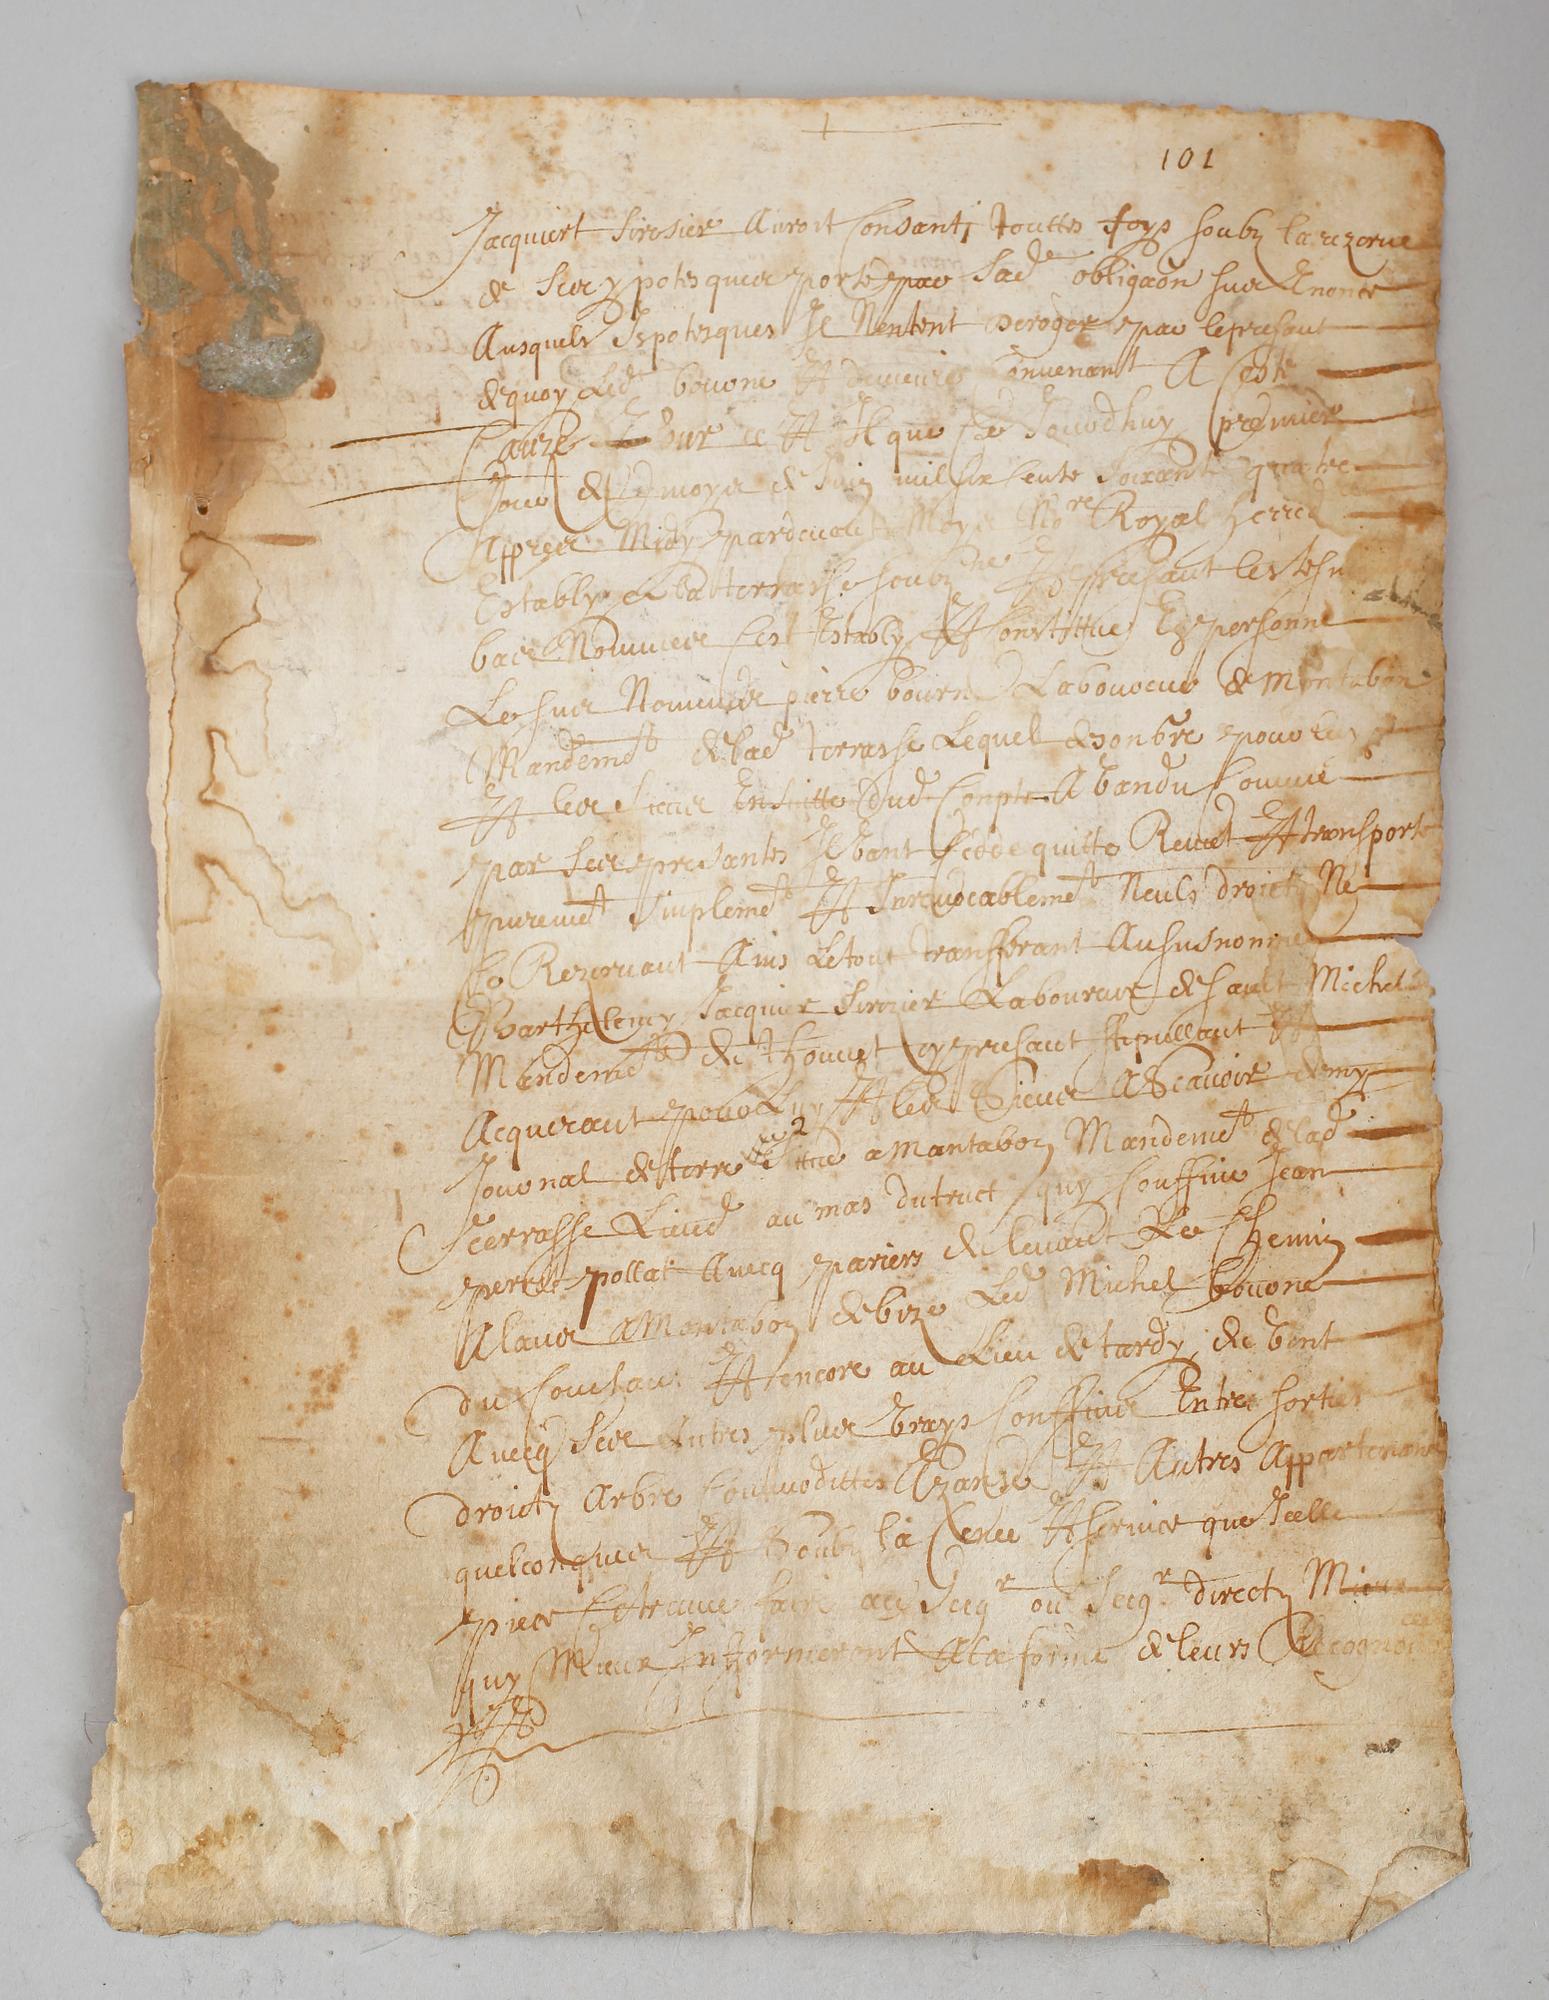 101
Jacquiert Sirosier Auroit Consanti touttes foys soubz la rezerve
de ses ypotesques porte par sad obligaon sur Enonce
Ausquels Ipotesques Il Nentent deroger par le presant
de quoy led bovone Et demeure Convenant A Ceste
Cauze Et il que Ce Jourdhuy premier
Jour du moys de Juin mil six cents soixante quatre
Apprees Midy pardevant Moy Nore Royal herred
Estably A la terrasse soubzne Et presant les tesm
bas Nommes Cest Estably Et Constittue En personne
Le sus Nommes pierre bovrne Laboureur de Montabon
Mandemt de lad terrasse Lequel de son bre pour luy
Et les siens Ensuitte dud Compte A Vandu Comme
par ses presantes Il Vant Cedde quitte Remet Et transporte
puremet Simplemet Et Inrevocablemet Neuls droictz Ne
Se Rezervant Ains Le tout transfferant Au susnomme
Barthelemy Jacquier Sirozier Laboureur de Sainct Michel
Mandemet de thouvet presant stipullant Et
Acquerant pour Luy Et les Siens A Scavoir demy
Journal de terre Sittue a Mantabon Mandemet de lad
Terrasse Lieud au mas du truct quy Conffine Jean
perret pollat Avecq pariers du levant Le Chemin
Alant A Montabon de bize Led Michel bovone
du Couchant Et encore au Lieu de tardy de Vent
Avecq Ses Autres plus Vrays Conffins Entres sorties
droictz Arbre Commodittes Et Autres Appartenanc
quelconques Et Soubz la Cence Et service que Icelle
piece Se treuve faire au Segr ou Segr directz Mieux
quy Mieux Infformeront A la forme de leurs Recogno
Et